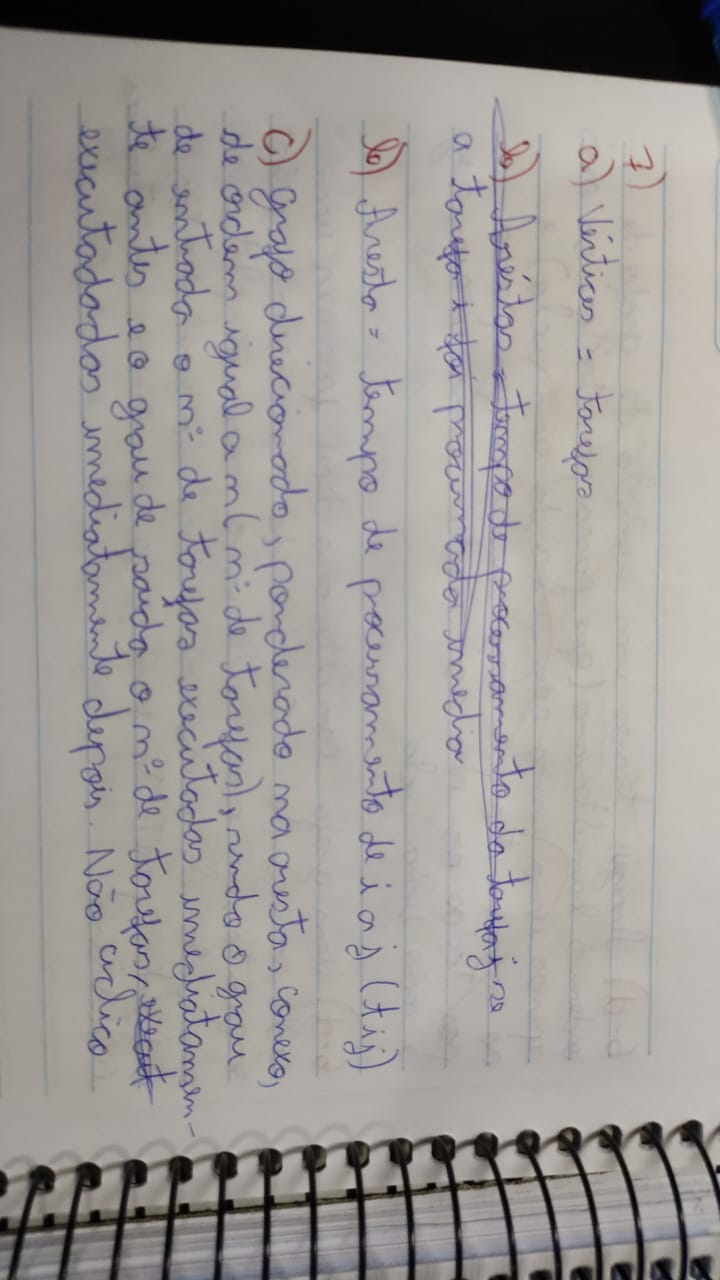 7)
a) Vértices = tarefas
b) Aréstas = tempo de processamento da tarefa j se
a tarefa i foi processada imedia
b) Aresta = tempo de processamento de i a j (tij)
c) grafo direcionado, ponderado na aresta, conexo,
de ordem igual a n( nº de tarefas), sendo o grau
de entrada o nº de tarefas executadas imediatamen-
te antes e o grau de saida o nº de tarefas, execut
executadadas imediatamente depois. Não ciclico